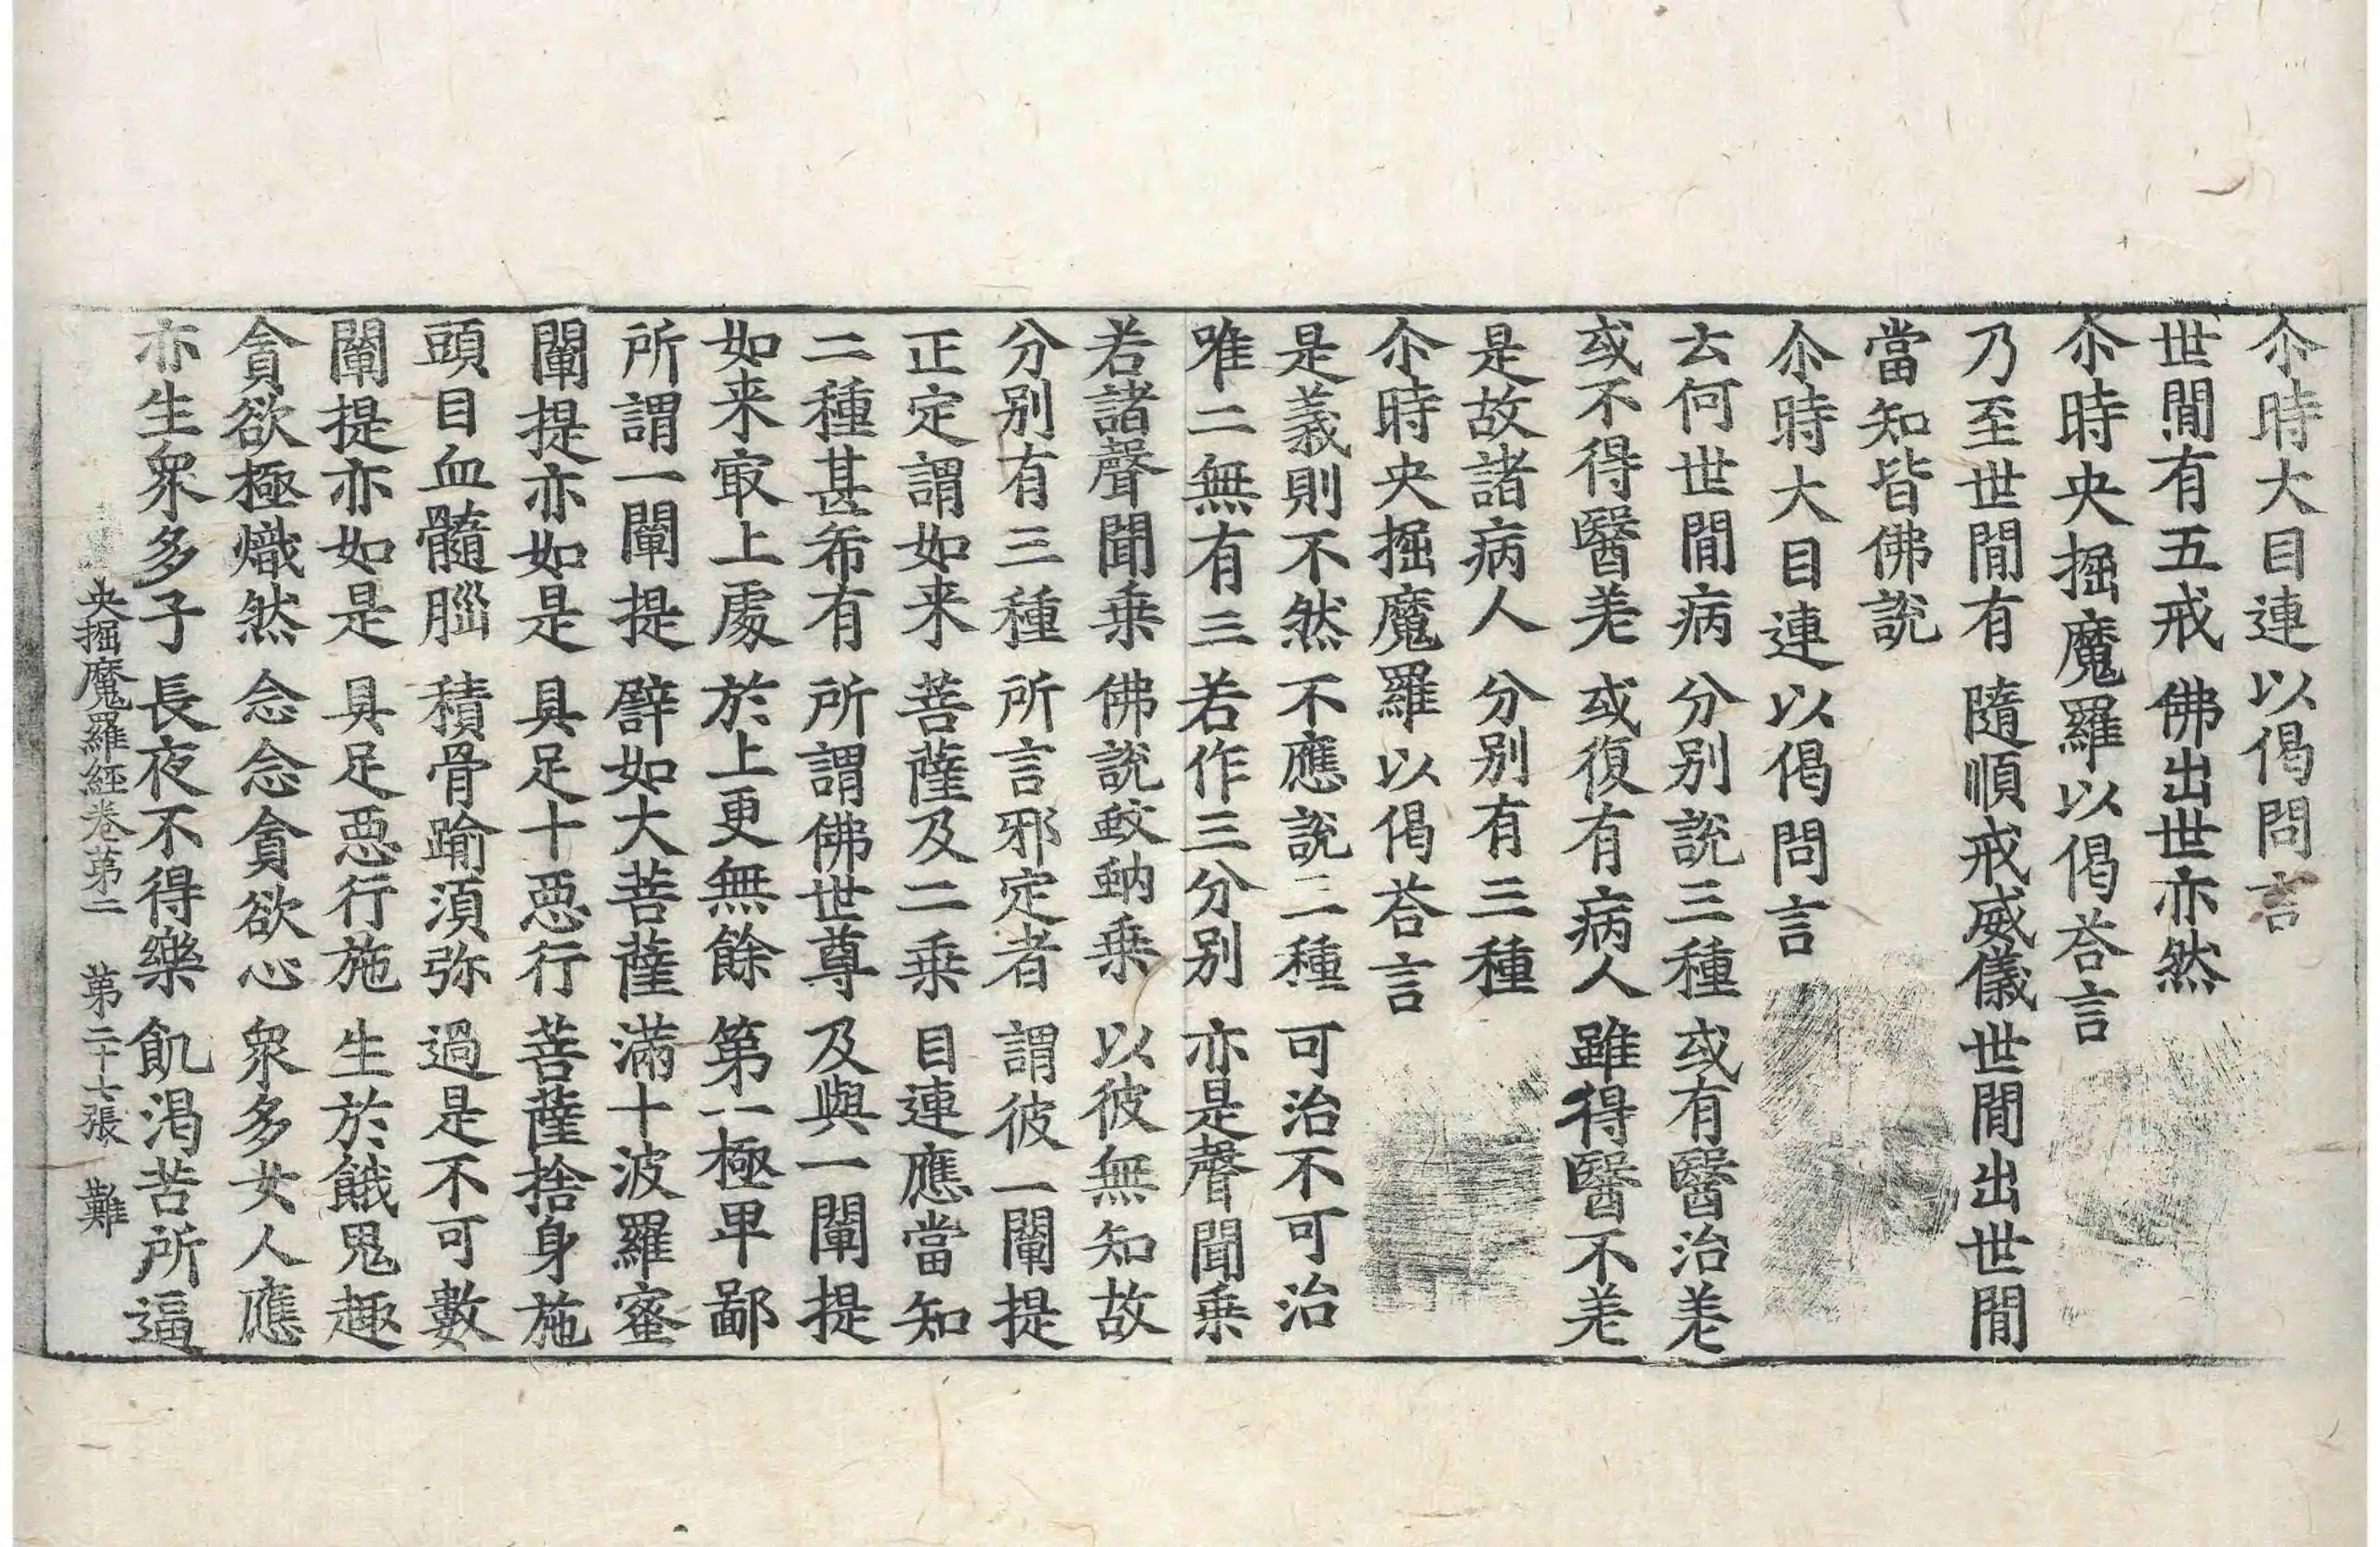 尒時大目連以偈問言
世閒有五戒　佛出世亦然
尒時央掘魔羅以偈荅言
乃至世閒有　隨順戒威儀　世閒出世閒
當知皆佛說
尒時大目連以偈問言
云何世閒病　分别說三種　或有醫治差
或不得醫差　或復有病人　雖得醫不差
是故諸病人　分别有三種
尒時央掘魔羅以偈荅言
是義則不然　不應說三種　可治不可治
唯二無有三　若作三分别　亦是聲聞乗
若諸聲聞乗　佛說蚊蚋乗　以彼無知故
分别有三種　所言邪定者　謂彼一闡提
正定謂如来　菩薩及二乗　目連應當知
二種甚希有　所謂佛世尊　及與一闡提
如来㝡上處　於上更無餘　第一極卑鄙
所謂一闡提　譬如大菩薩　滿十波羅蜜
闡提亦如是　具足十惡行　菩薩捨身施
頭目血髓腦　積骨踰須弥　過是不可數
闡提亦如是　具足惡行施　生於餓鬼趣
貪欲極熾然　念念貪欲心　衆多女人應
亦生衆多子　長夜不得樂　飢渴苦所逼
央掘魔羅經卷第二　第二十七張　難